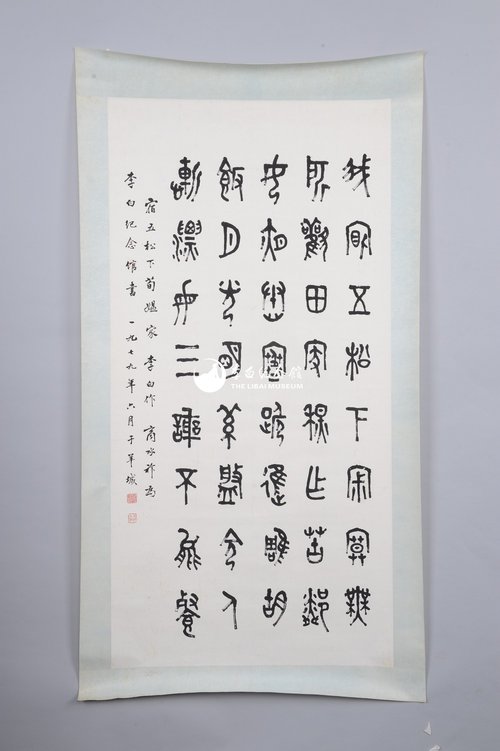 我宿五松下寂寥無
所歡田家秋作苦鄰
女夜舂寒跪進雕胡
飯月光明素盤令人
慚漂母三謝不能餐
宿五松下荀媼家 李白作 商承祚為
李白纪念馆書 一九七九年六月于羊城
李白纪念馆
THE LIBAI MUSEUM